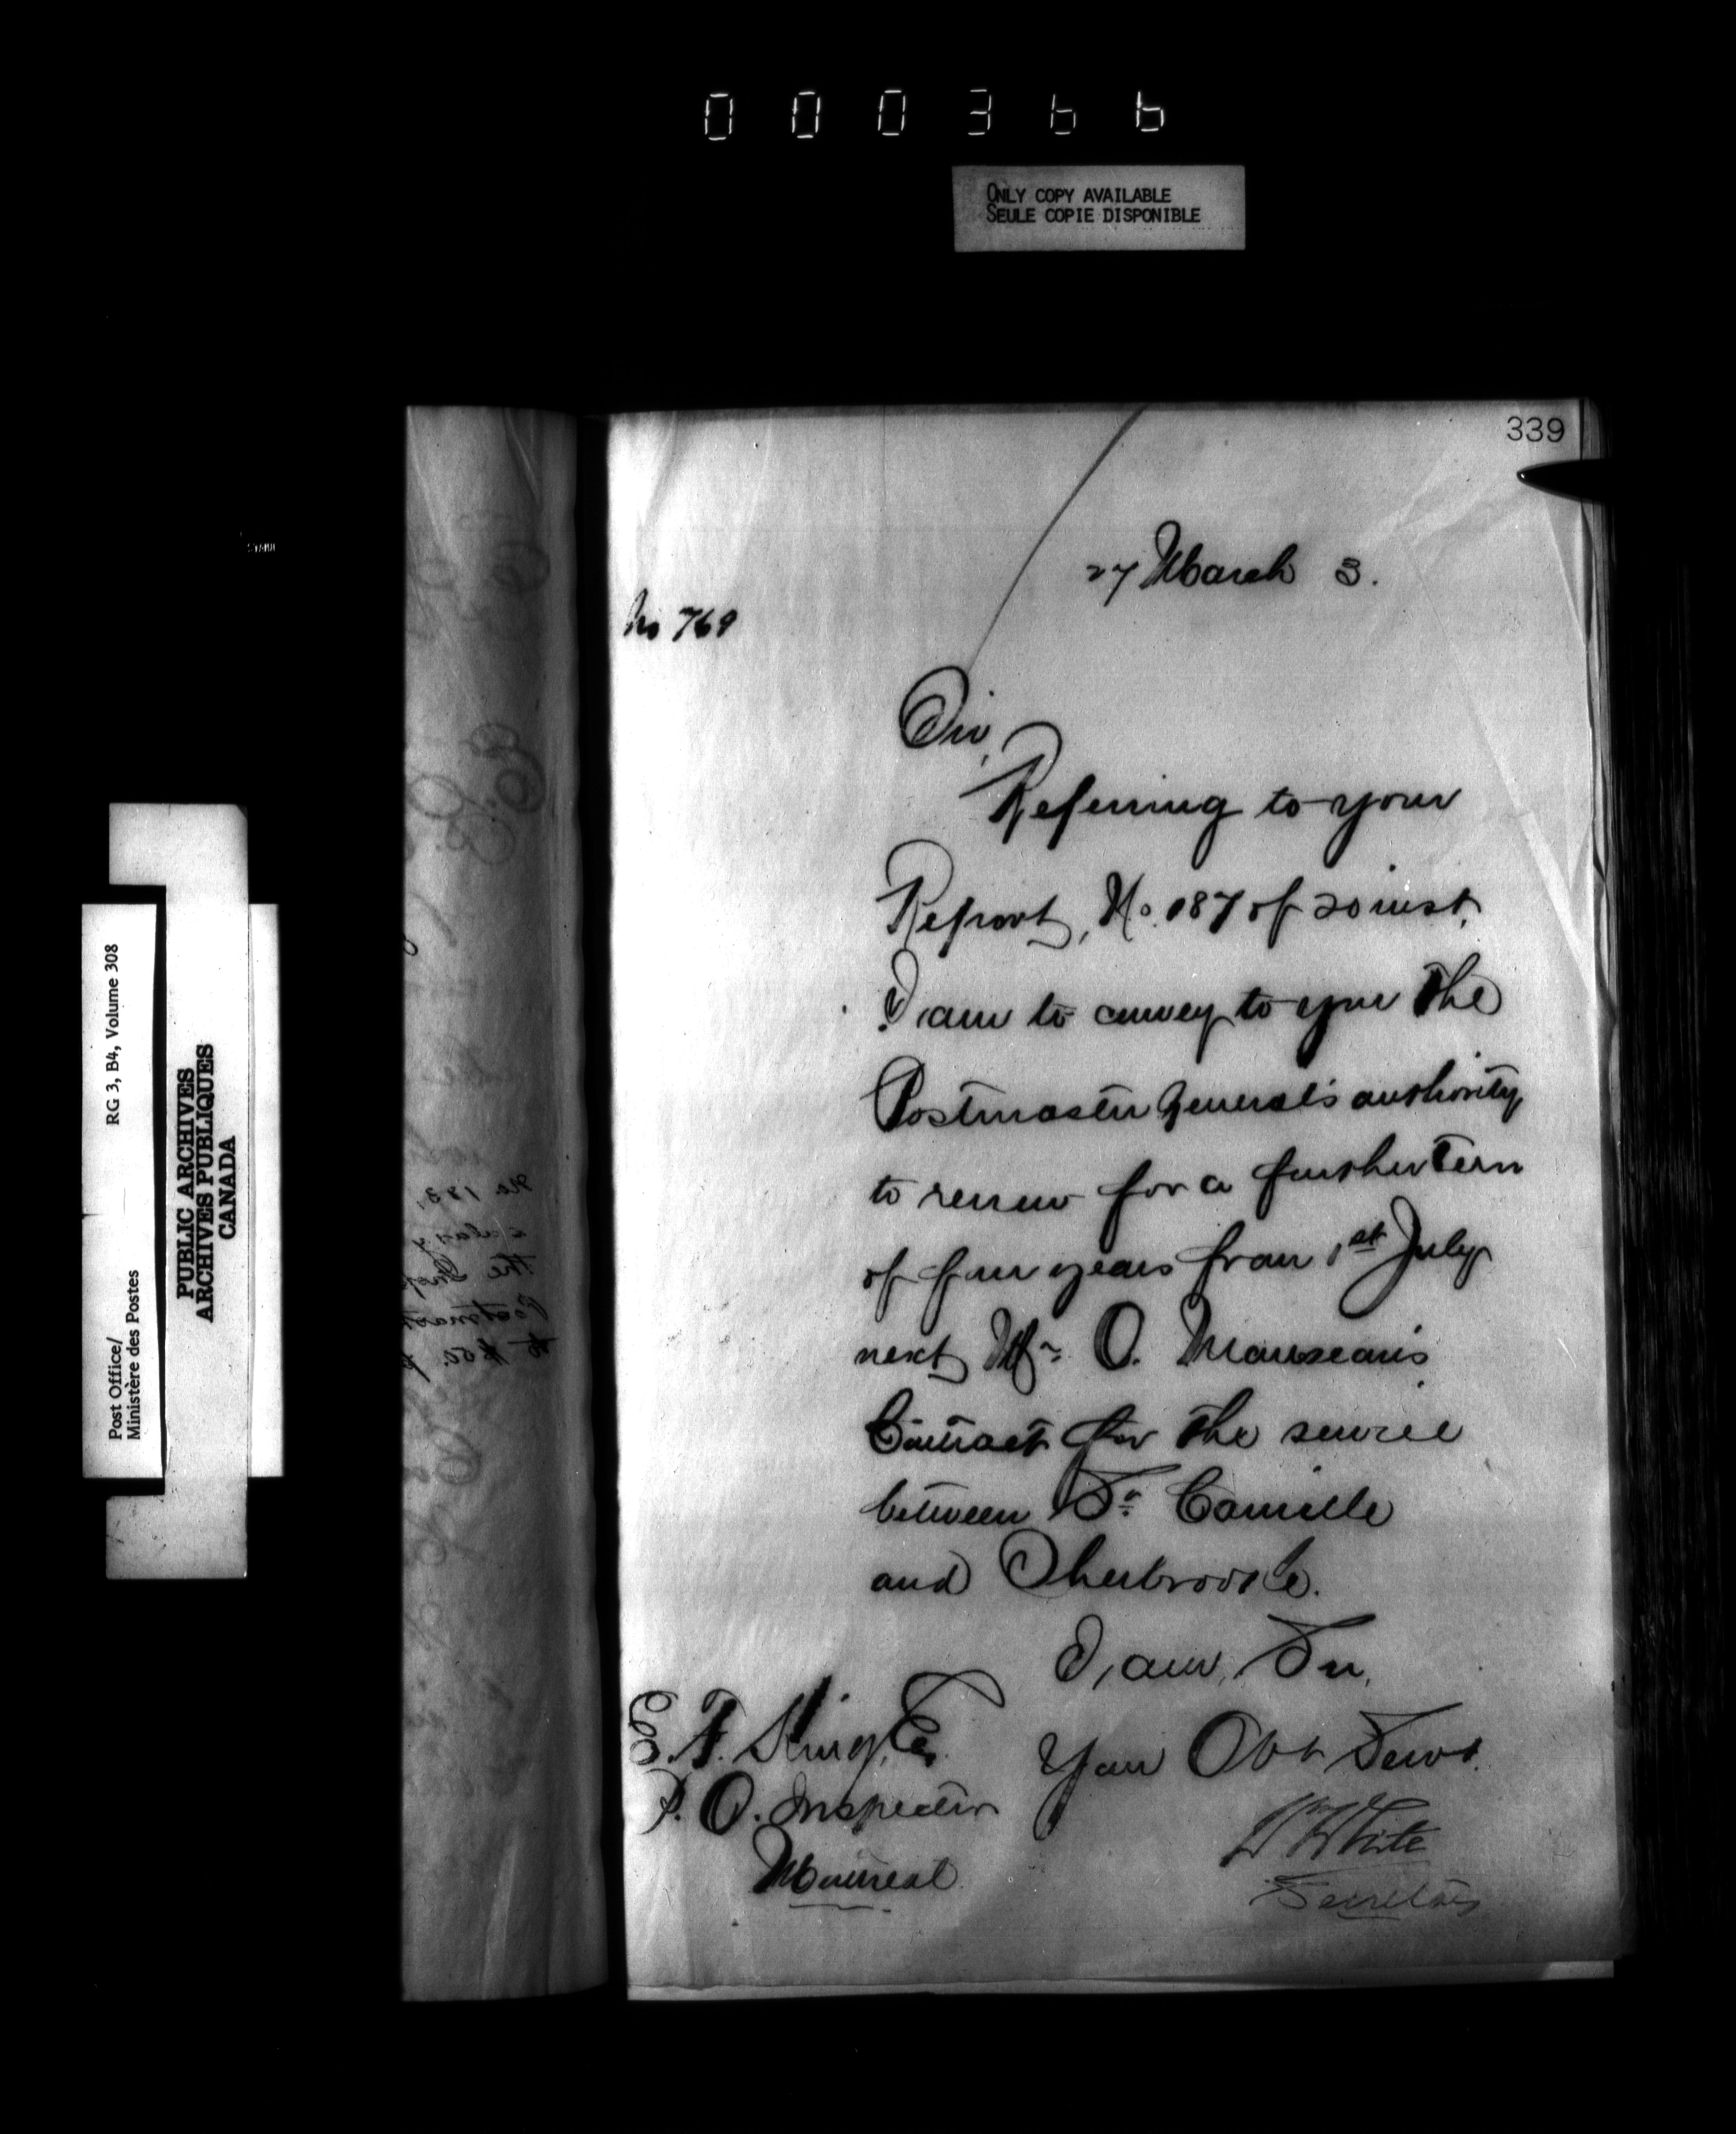 000366
ONLY COPY AVAILABLE
SEULE COPIE DISPONIBLE
339
27 March 3.
No 769
Sir,
Referring to your
Report, No. 187 of 20 inst,
I am to convey to you the
Postmaster General's authority
to renew for a further term
of four years from 1st July
next Mr. O. Manseau's
Contract for the service
between St. Camille
and Sherbrooke.
I am, Sir,
Your Obt Servt.
W White
Secretary
E. F. King, Esq.
P. O. Inspector
Montreal
Post Office/
Ministère des Postes
RG 3, B4, Volume 308
PUBLIC ARCHIVES
ARCHIVES PUBLIQUES
CANADA